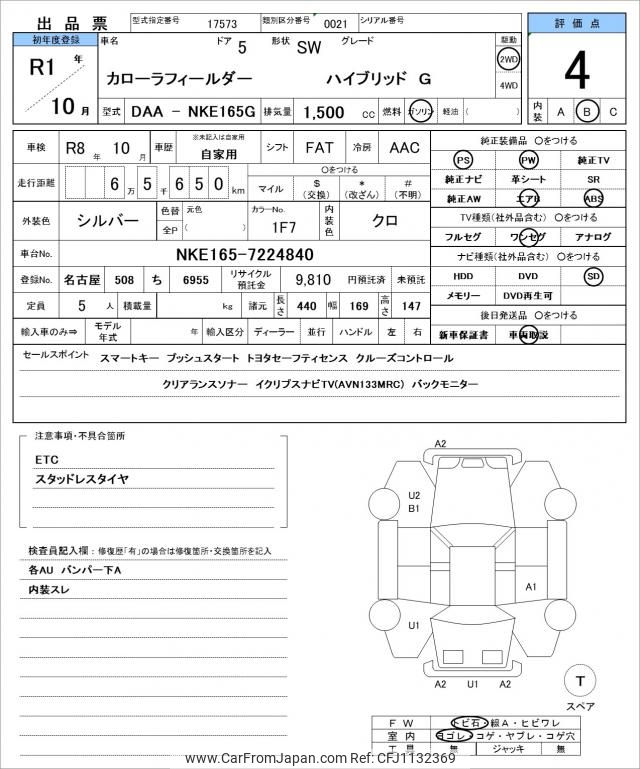 出品票 型式指定番号 17573 類別区分番号 0021 シリアル番号
評価点
初年度登録 車名 ドア 5 形状 SW グレード 駆動
R1 年 カローラフィールダー ハイブリッド G 2WD 4
10 月 4WD
型式 DAA - NKE165G 排気量 1,500 cc 燃料 ガソリン 軽油 ( ) 内装 A B C
車検 R8 年 10 月 車歴 ※未記入は自家用 自家用 シフト FAT 冷房 AAC
純正装備品 〇をつける
PS PW 純正TV
走行距離 6 万 5 千 6 5 0 km 〇をつける
マイル $ (交換) * (改ざん) # (不明)
純正ナビ 革シート SR
純正AW エアB ABS
外装色 シルバー 色替 元色 全P ( ) カラーNo. 1F7 内装色 クロ
TV種類(社外品含む) 〇をつける
フルセグ ワンセグ アナログ
車台No. NKE165-7224840
ナビ種類(社外品含む) 〇をつける
登録No. 名古屋 508 ち 6955 リサイクル預託金 9,810 円預託済 未預託
HDD DVD SD
定員 5 人 積載量 kg 諸元 長さ 440 幅 169 高さ 147
メモリー DVD再生可
後日発送品 〇をつける
輸入車のみ⇒ モデル年式 年 輸入区分 ディーラー 並行 ハンドル 左 右
新車保証書 車両取説
セールスポイント スマートキー プッシュスタート トヨタセーフティセンス クルーズコントロール
クリアランスソナー イクリプスナビTV(AVN133MRC) バックモニター
注意事項・不具合箇所
ETC
スタッドレスタイヤ
検査員記入欄 : 修復歴「有」の場合は修復箇所・交換箇所を記入
各AU バンパー下A
内装スレ
A2
U2
B1
A1
U1
A2 U1 A2
T
スペア
FW トビ石・線A・ヒビワレ
室内 ヨゴレ・コゲ・ヤブレ・コゲ穴
工具 無 ジャッキ 無
www.CarFromJapan.com Ref: CFJ1132369